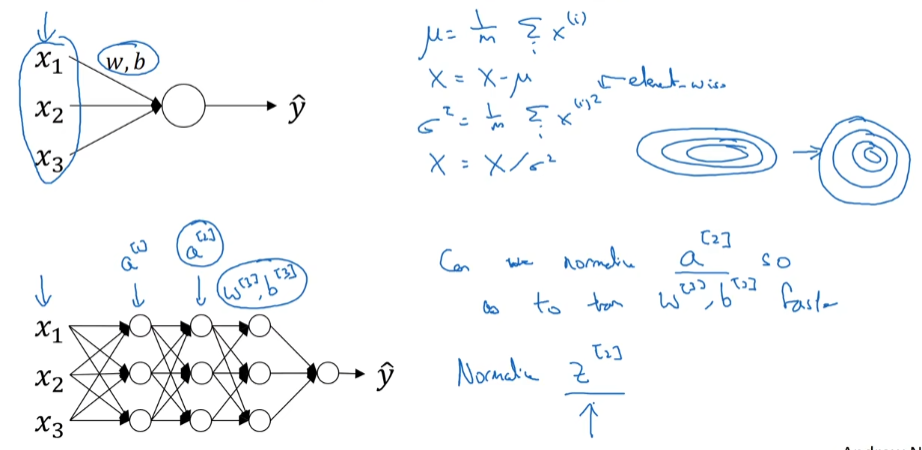 x₁ w, b
x₂ ŷ
x₃
μ = 1/m Σᵢ x⁽ⁱ⁾
X = X - μ
σ² = 1/m Σᵢ x⁽ⁱ⁾² ← element-wise
X = X / σ²
a[1] a[2] w[3], b[3]
x₁
x₂ ŷ
x₃
Can we normalize a[2] so
as to train w[3], b[3] faster
Normalize z[2]